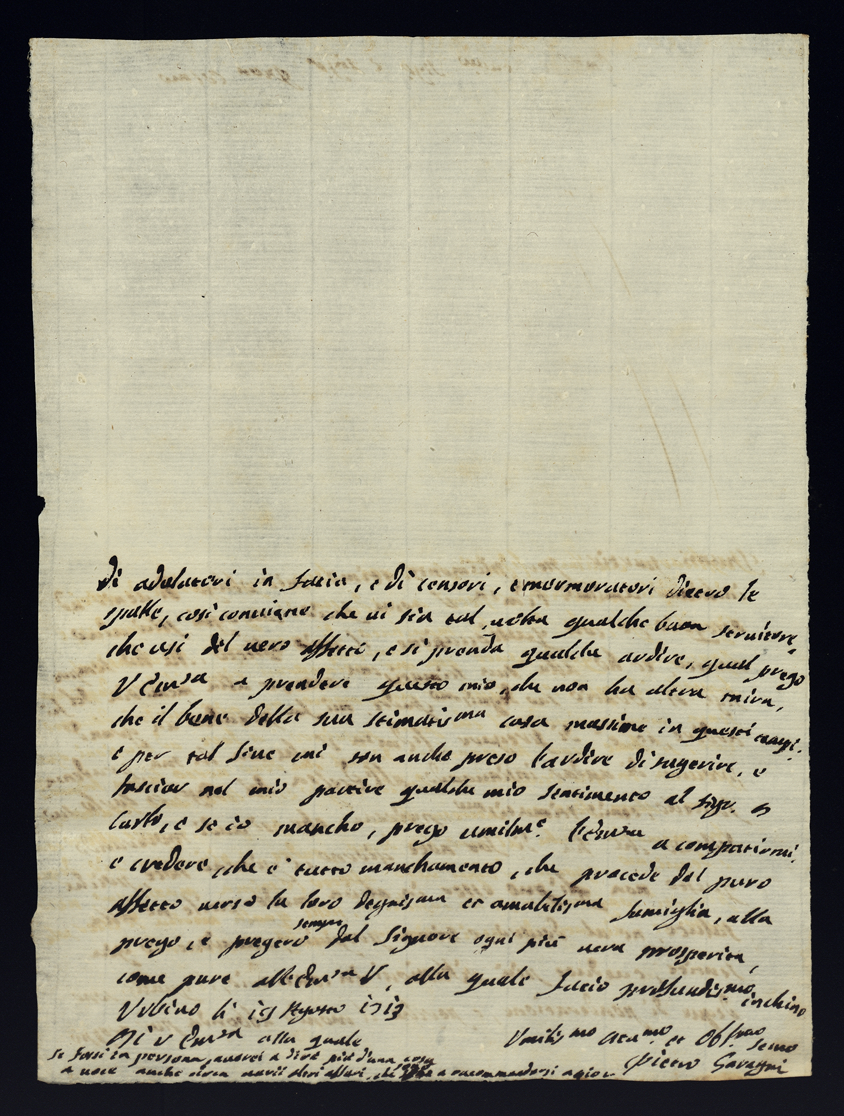 di adulatori in facia, e di censori, e mormoratori dietro le
spalle, così conviene che vi sia tal volta qualche buon servitore
che usi del vero affetto, e si prenda qualche ardire, qual prego
V Em.za a prendere questo mio, che non ha altra mira,
che il bene della sua stimatis.ma casa massime in questi
e per tal fine mi son anche preso l'ardire di sugerire, e
lasciar nel mio partire qualche mio sentimento al Sigr.
Carlo, e se io mancho, prego umilm.e l'Em.za a compatirmi,
e credere, che è tutto manchamento, che procede dal puro
affetto verso la loro degnis.ma et amabilis.ma famiglia, alla
prego, e pregerò sempre dal Signore ogni più vera prosperità,
come pure all'Em.za V, alla quale facio profondis.mo inchino
Urbino li Agosto
Di V Em.za alla quale
Umilis.mo et Obl.mo Servo
Pietro
se fossi in persona, averei a dire più d'una cosa
a voce anche circa varii altri affari, che